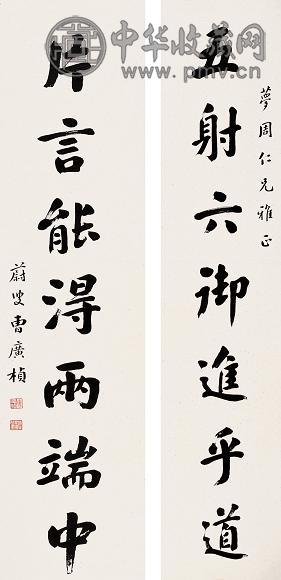 中华收藏网
www.pmv.cn
夢周仁兄雅正
五射六御進乎道
片言能得兩端中
蔚叟曹廣楨